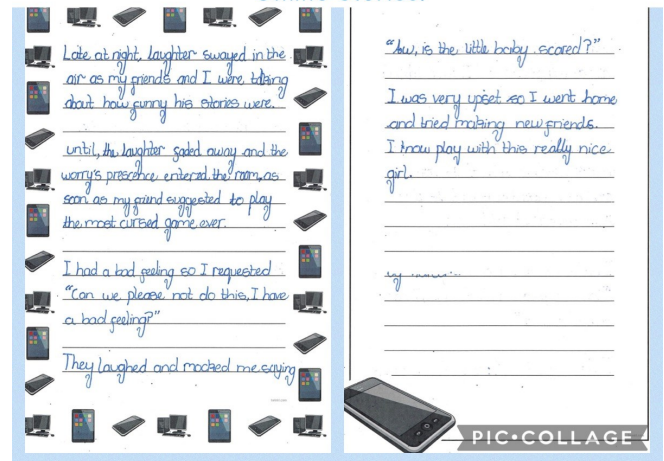 Late at night, laughter swayed in the
air as my friends and I were talking
about how funny his stories were.
until, the laughter faded away and the
worry's prescence entered the room, as
soon as my friend suggested to play
the most cursed game ever.
I had a bad feeling so I requested
"Can we please not do this, I have
a bad feeling?"
They laughed and mocked me saying
"Aw, is the little baby scared?"
I was very upset so I went home
and tried making new friends.
I know play with this really nice
girl.
by
PIC•COLLAGE